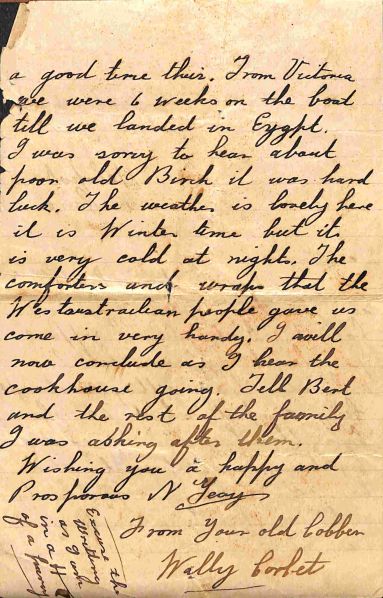 a good time their. From Victoria
we were 6 weeks on the boat
till we landed in Eygpt.
I was sorry to hear about
poor old Birch it was hard
luck. The weather is lovely here
it is Winter time but it
is very cold at nights. The
comforters and wraps that the
Westaustrailian people gave us
come in very handy. I will
now conclude as I hear the
cookhouse going. Tell Bert
and the rest of the family
I was asking after them.
Wishing you a happy and
Prosporous N Year
From Your old Cobber
Wally Corbet
Excuse the
Writting
as I was
in a
of a hurry